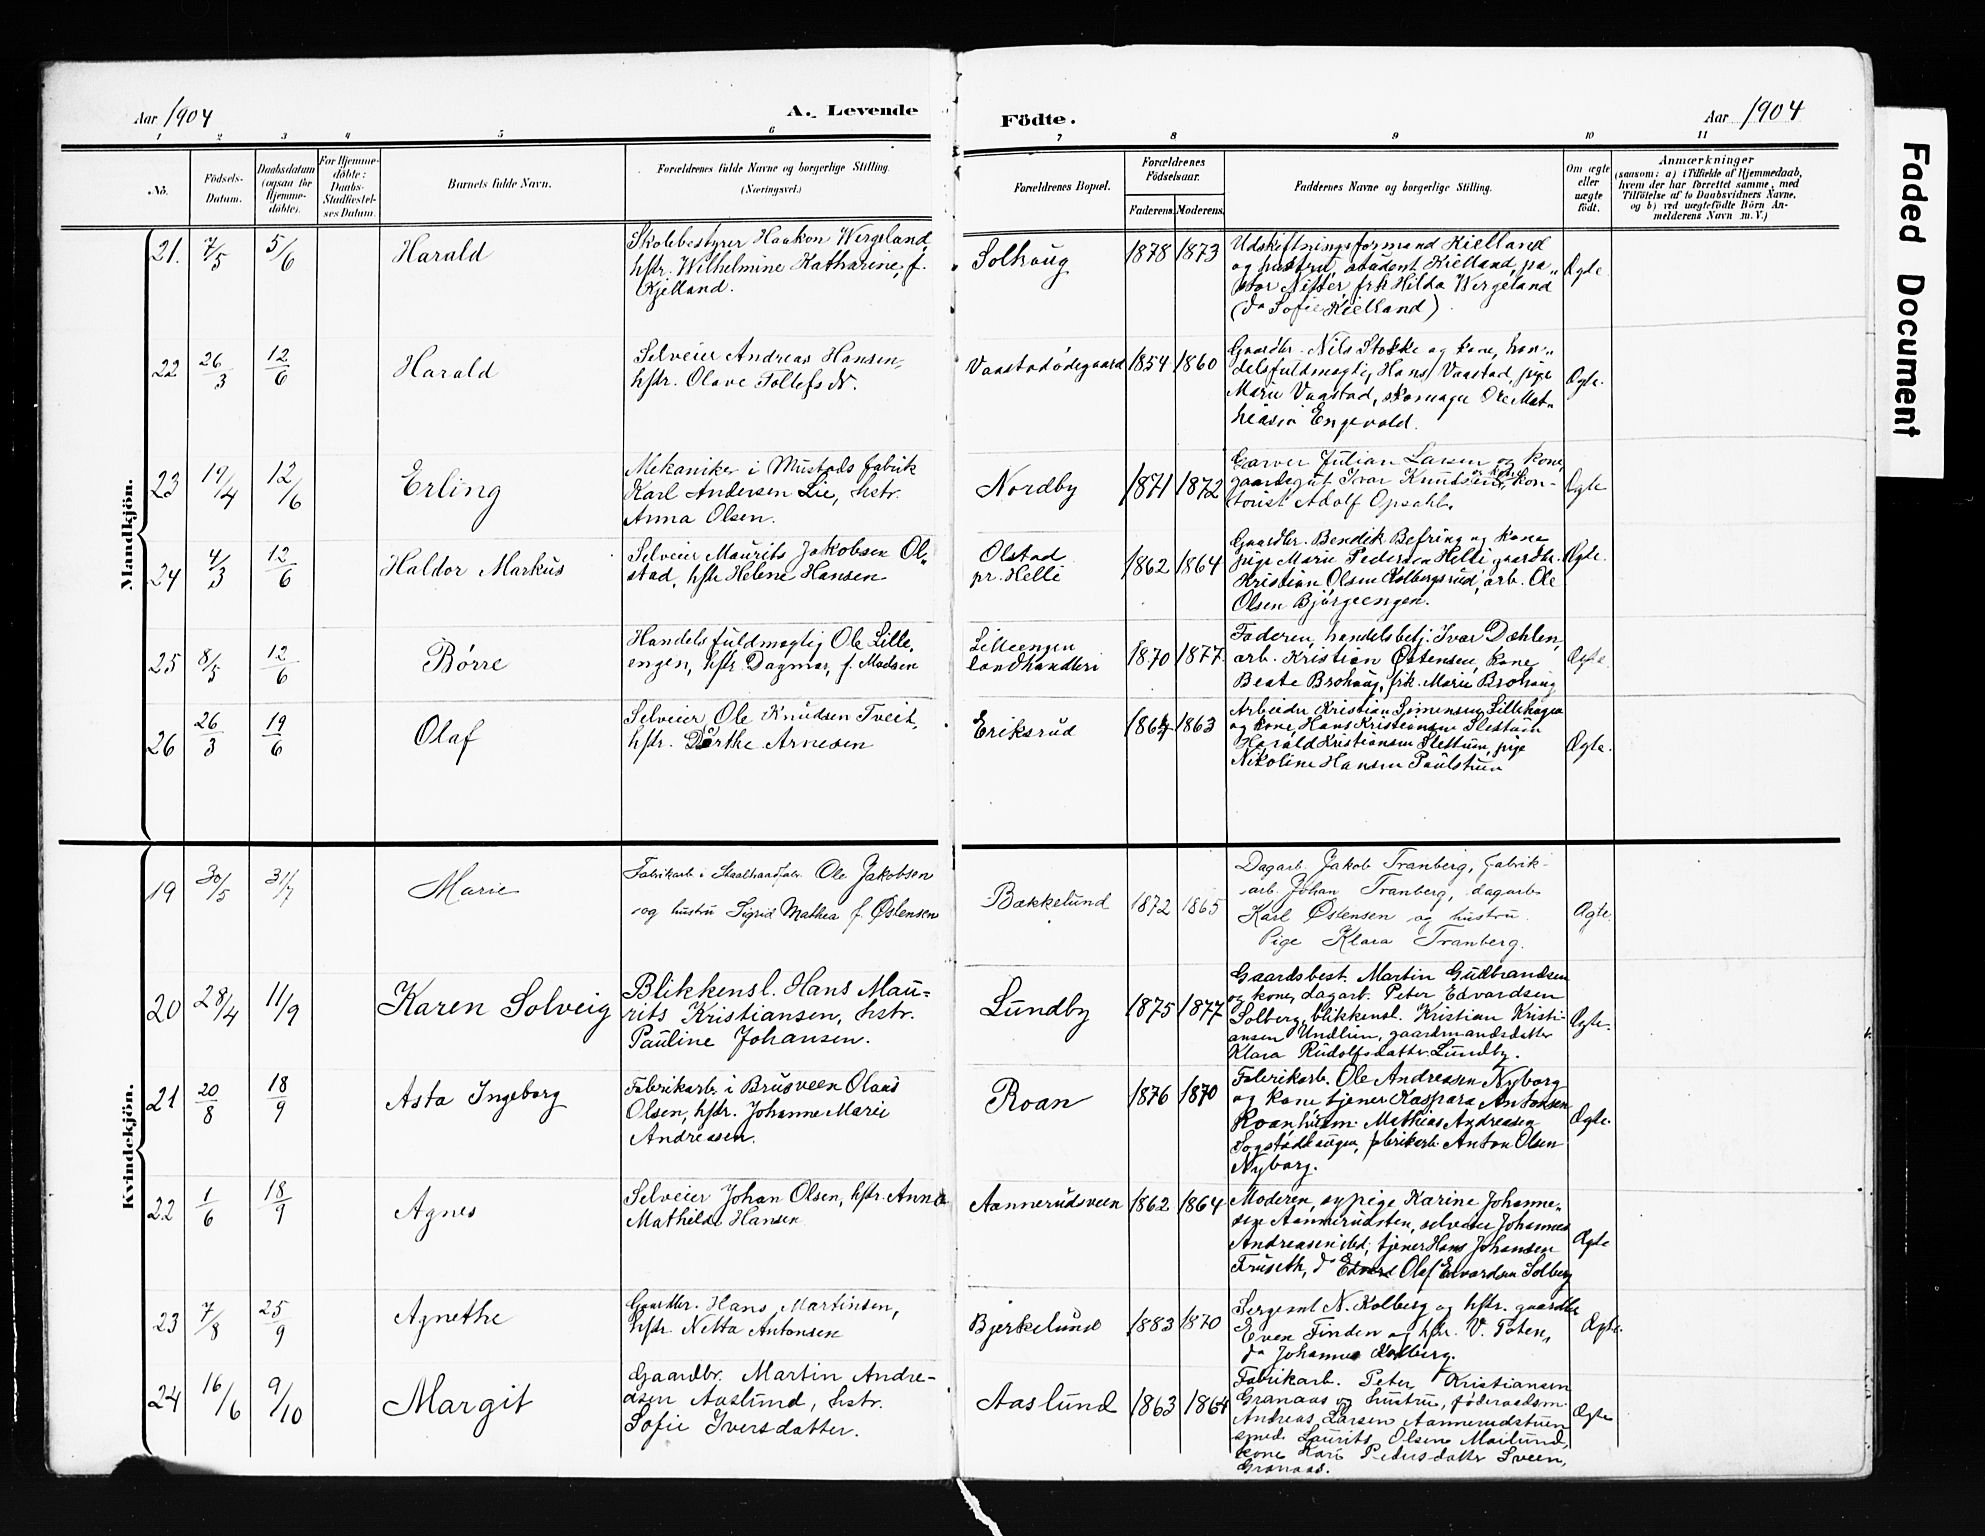 Aar 1904
A. Levende
Födte.
Aar 1904
1 2 3 4 5 6 7 8 9 10 11
No.
Födsels-
Datum.
Daabsdatum
(ogsaa for
Hjemme-
döbte).
For Hjemme-
döbte:
Daabs-
Stadfæstel-
ses Datum.
Barnets fulde Navn.
Forældrenes fulde Navne og borgerlige Stilling.
(Næringsvei.)
Forældrenes Bopæl.
Forældrenes
Födselsaar.
Faderens. Moderens.
Faddernes Navne og borgerlige Stilling.
Om ægte
eller
uægte
födt.
Anmærkninger
(saasom: a) i Tilfælde af Hjemmedaab,
hvem der har forrettet samme, med
Tilföielse af to Daabsvidners Navne,
og b) ved uægtefödte Börn An-
melderens Navn m. V.)
Mandkjön.
21. 7/5 5/6 Harald
Skolebestyrer Haakon Wergeland,
hstr. Wilhelmine Katharine, f.
Kjelland.
Solhaug 1878 1873
Udskiftningsformand Kielland
og hustru, student Kielland, pa-
stor Nitter, frk Hilda Wergeland
(do Sofie Kielland)
Ægte
22 26/3 12/6 Harald
Selveier Andreas Hansen,
hstr. Olave Tollefsdr.
Vaastadødegaard 1854 1860
Gaardbr. Nils Stokke og kone, han-
delsfuldmægtig Hans Vaastad, pige
Marie Vaastad, skomager Ole Mat-
hiasen Engevold.
Ægte.
23 14/4 12/6 Erling
Mekaniker i Mustads fabrik
Karl Andersen Lie, hstr.
Anna Olsen.
Nordby 1871 1872
Garver Julian Larsen og kone,
gaardegut Ivar Knudsen og kone, kon-
torist Adolf Opsahl.
Ægte
24 4/3 12/6 Haldor Markus
Selveier Maurits Jakobsen Ol-
stad, hstr Helene Hansen
Olstad
pr. Helli
1862 1864
Gaardbr. Bendik Befring og kone
pige Marie Pedersen Helli gaardbr.
Kristian Olsen Kolbergsrud, arb. Ole
Olsen Bjørgeengen.
Ægte.
25 8/5 12/6 Børre
Handelsfuldmægtig Ole Lille-
engen, hstr. Dagmar, f. Madsen
Lilleengen
landhandleri
1870 1877
Faderen, handelsbetj. Ivar Dæhlen,
arb. Kristian Østensen, kone
Beate Brohaug, frk. Marie Brohaug
Ægte
26 26/3 19/6 Olaf
Selveier Ole Knudsen Tveit,
hstr. Dorthe Arnesen
Eriksrud 1864 1863
Arbeider Kristian Simensen Lillehagen
og kone, Hans Kristiansen Slettum
Harald Kristiansen Slettum, pige
Nikoline Hansen Paulstuen
Ægte.
Kvindekjön.
19 30/5 31/7 Marie
Fabrikarb i Staaltraadfabr. Ole Jakobsen
og hustru Sigrid Mathea f. Østensen
Bækkelund 1872 1865
Dagarb. Jakob Tranberg, fabrik-
arb. Johan Tranberg, dagarb
Karl Østensen og hustru.
Pige Klara Tranberg.
Ægte.
20 28/4 11/9 Karen Solveig
Blikkensl. Hans Mau-
rits Kristiansen, hstr.
Pauline Johansen.
Lundby 1875 1877
Gaardsbest. Martin Gudbrandsen
og kone, dagarb. Peter Edvardsen
Solberg, blikkensl. Kristian Kristi-
ansen Undlien, gaardmandsdatter
Klara Rudolfsdatter Lundby.
Ægte.
21 20/8 18/9 Asta Ingeborg
Fabrikarb. i Brusveen Olaus
Olsen, hstr. Johanne Marie
Andreasen.
Roan 1876 1870
Fabrikarb. Ole Andreasen Nyborg
og kone tjener Kaspara Antonsen
Roan, husm. Mathias Andreasen
Sogstadhaugen, fabrikarb. Anton Olsen
Nyborg.
Ægte.
22 1/6 18/9 Agnes
Selveier Johan Olsen, hstr. Anna
Mathilde Hansen
Aannerudsveen 1862 1864
Moderen, sypige Karine Johanne-
sen Aannerudsten, selveier Johannes
Andreasen ibd, tjener Hans Johansen
Fruseth, do Olaf Edvardsen Solberg
Ægte
23 7/8 25/9 Agnethe
Gaardbr. Hans Martinsen,
hstr Netta Antonsen
Bjerkelund 1883 1870
Sergeant N. Kolberg og hstr. gaardbr
Even Finden og hstr. V. Toten,
do Johannes Kolberg.
Ægte.
24 16/6 9/10 Margit
Gaardbr. Martin Andre-
asen Aaslund, hstr.
Sofie Iversdatter.
Aaslund 1863 1864
Fabrikarb. Peter Kristiansen
Granaas og hustru, føderaadsm.
Andreas Larsen Aannerudstuen
smed. Laurits Olsen Moilund,
kone Kari Pedersdatter Sveen,
Granaas.
Ægte
Faded Document